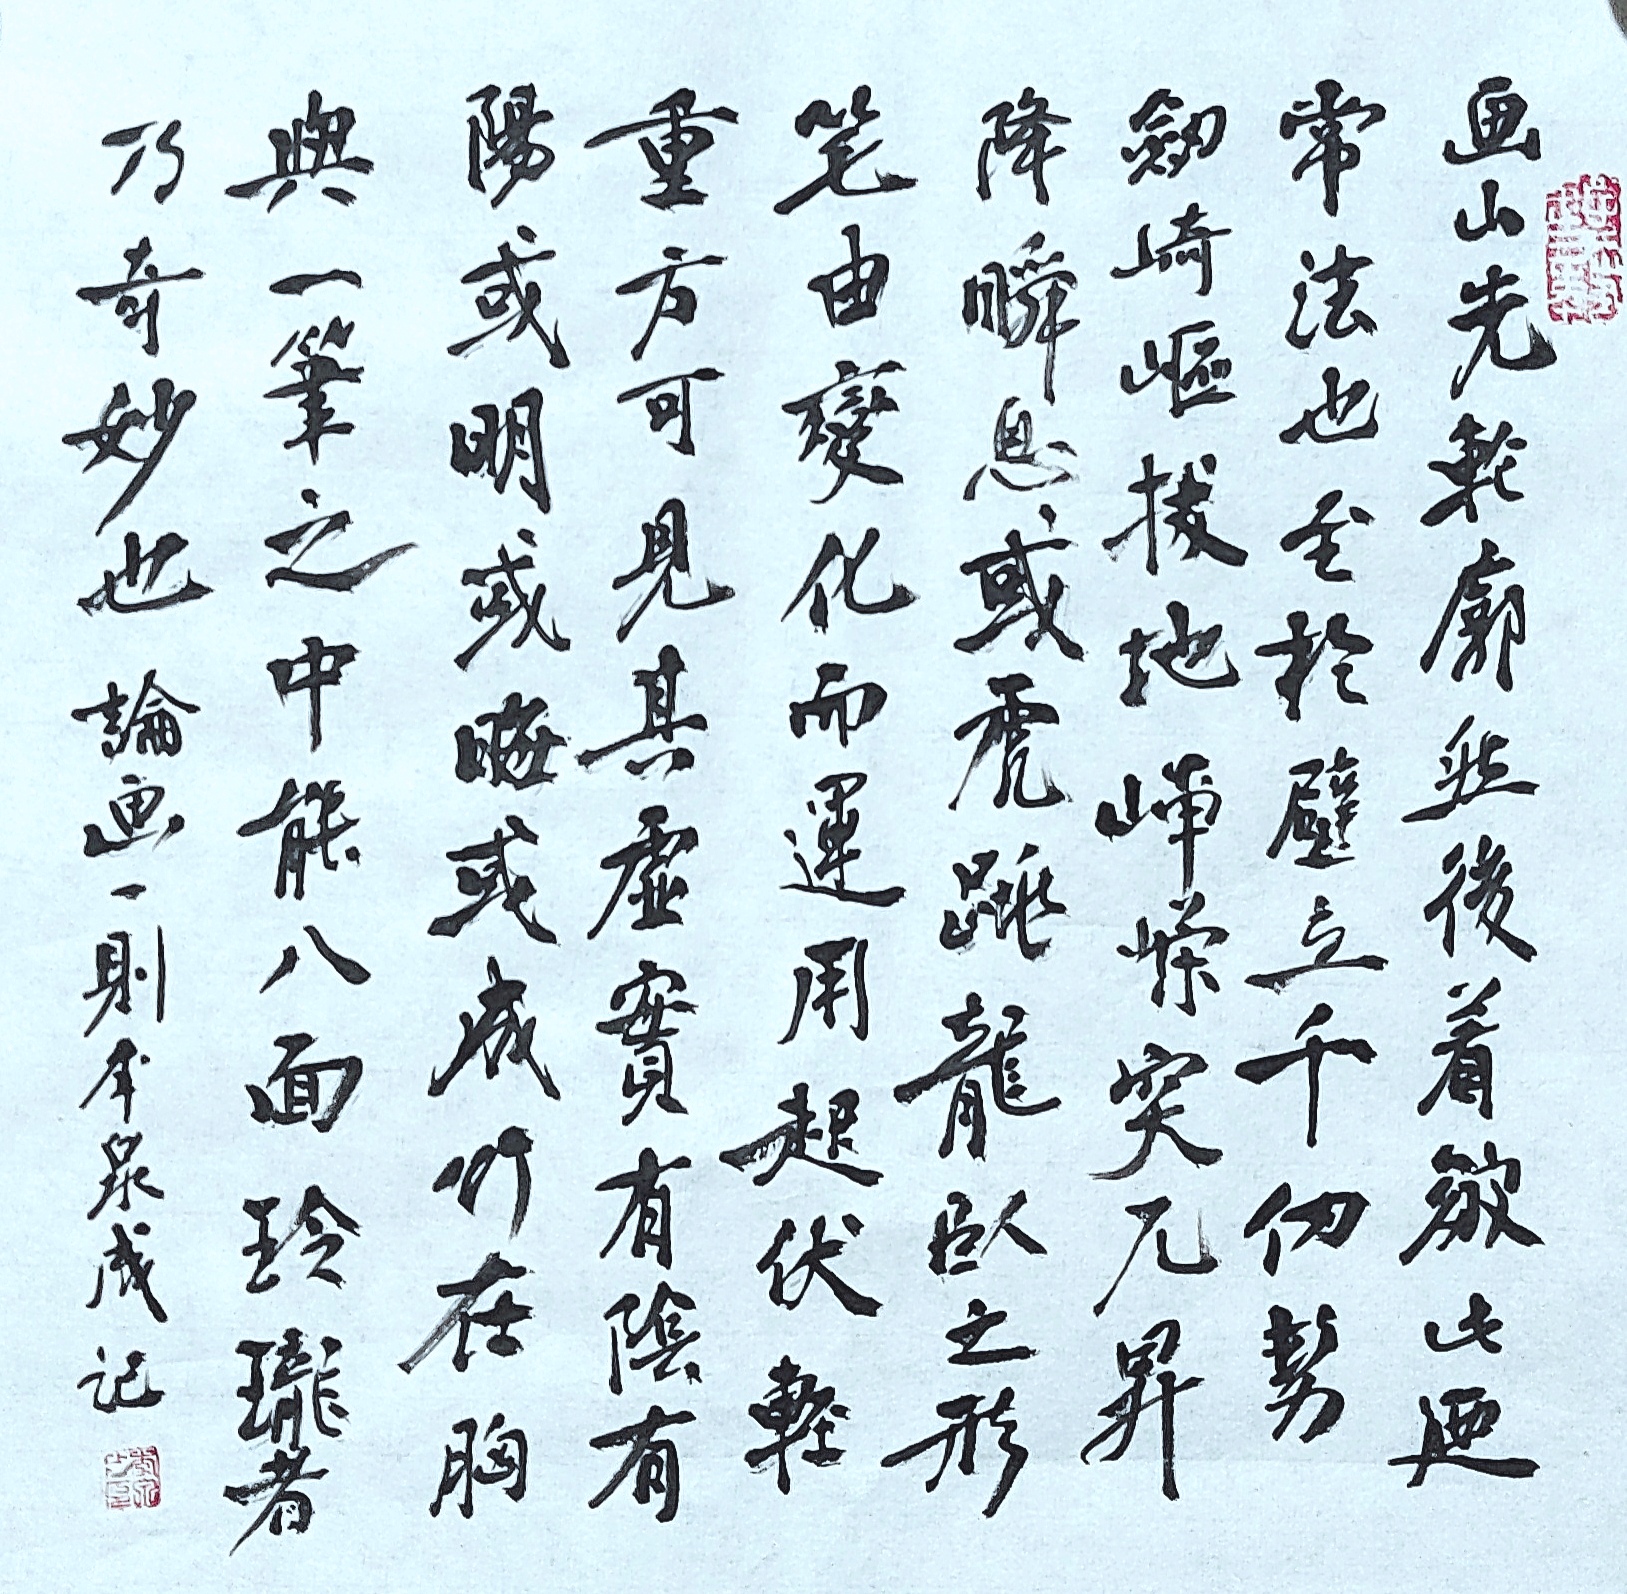 画山先轮廓然後着皴此迺
常法也至於壁立千仞勢
劒崎嶇拔地崢嶸突兀昇
降瞬息或虎跳龍臥之形
笔由變化而運用起伏輕
重方可見其虛實有陰有
陽或明或晦或成竹在胸
與一筆之中能八面玲瓏者
乃奇妙也 論画一則 泉成记